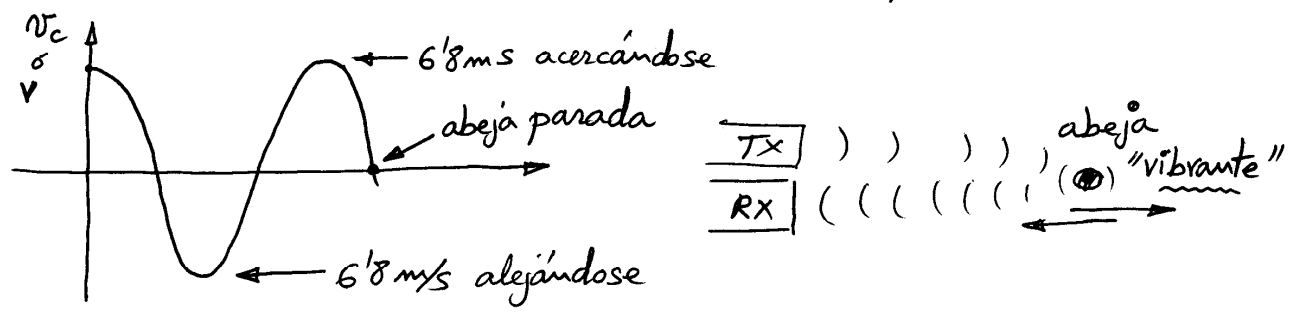 vc
ó
v
6'8ms acercándose
abeja parada
6'8 m/s alejándose
TX
RX
abeja
"vibrante"